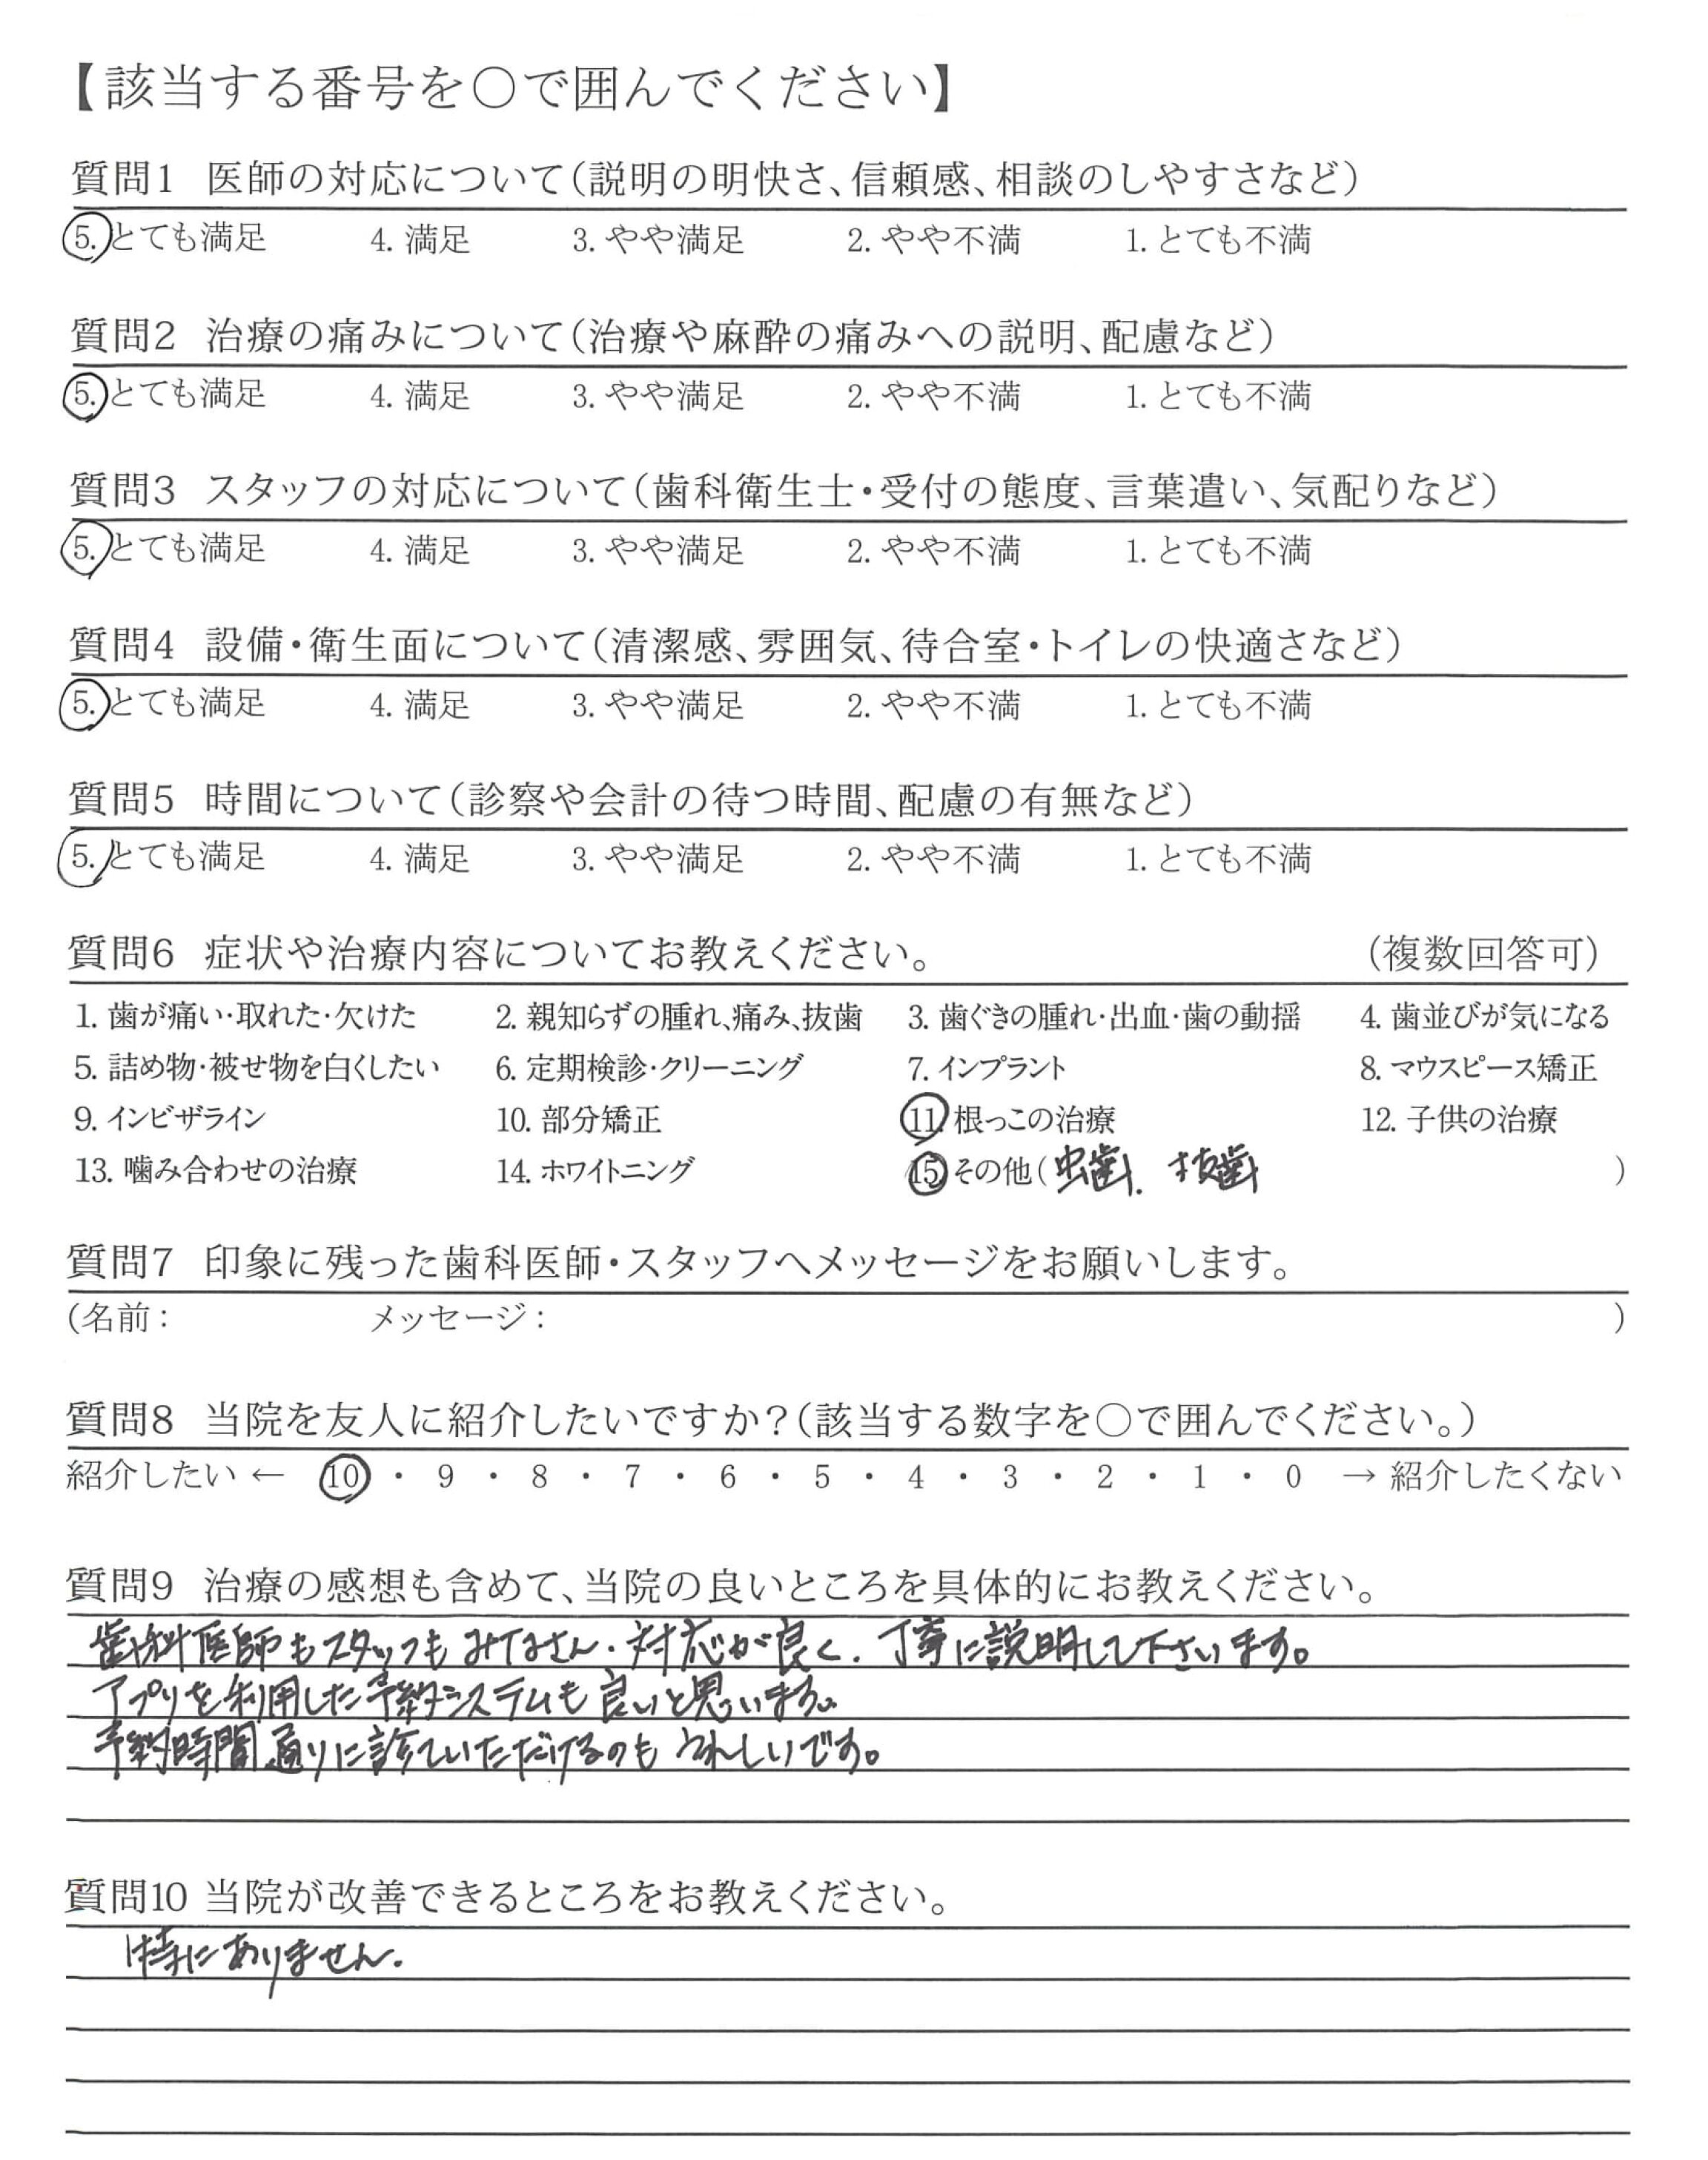 【該当する番号を〇で囲んでください】
質問1 医師の対応について（説明の明快さ、信頼感、相談のしやすさなど）
5. とても満足 4. 満足 3. やや満足 2. やや不満 1. とても不満
質問2 治療の痛みについて（治療や麻酔の痛みへの説明、配慮など）
5. とても満足 4. 満足 3. やや満足 2. やや不満 1. とても不満
質問3 スタッフの対応について（歯科衛生士・受付の態度、言葉遣い、気配りなど）
5. とても満足 4. 満足 3. やや満足 2. やや不満 1. とても不満
質問4 設備・衛生面について（清潔感、雰囲気、待合室・トイレの快適さなど）
5. とても満足 4. 満足 3. やや満足 2. やや不満 1. とても不満
質問5 時間について（診察や会計の待つ時間、配慮の有無など）
5. とても満足 4. 満足 3. やや満足 2. やや不満 1. とても不満
質問6 症状や治療内容についてお教えください。 （複数回答可）
1. 歯が痛い・取れた・欠けた 2. 親知らずの腫れ、痛み、抜歯 3. 歯ぐきの腫れ・出血・歯の動揺 4. 歯並びが気になる
5. 詰め物・被せ物を白くしたい 6. 定期検診・クリーニング 7. インプラント 8. マウスピース矯正
9. インビザライン 10. 部分矯正 11. 根っこの治療 12. 子供の治療
13. 噛み合わせの治療 14. ホワイトニング 15. その他（虫歯、抜歯 ）
質問7 印象に残った歯科医師・スタッフへメッセージをお願いします。
（名前： メッセージ： ）
質問8 当院を友人に紹介したいですか？（該当する数字を〇で囲んでください。）
紹介したい ← 10 ・ 9 ・ 8 ・ 7 ・ 6 ・ 5 ・ 4 ・ 3 ・ 2 ・ 1 ・ 0 → 紹介したくない
質問9 治療の感想も含めて、当院の良いところを具体的にお教えください。
歯科医師もスタッフもみなさん、対応が良く、丁寧に説明して下さいます。
アプリを利用した予約システムも良いと思います。
予約時間通りに診ていただけるのもうれしいです。
質問10 当院が改善できるところをお教えください。
特にありません。